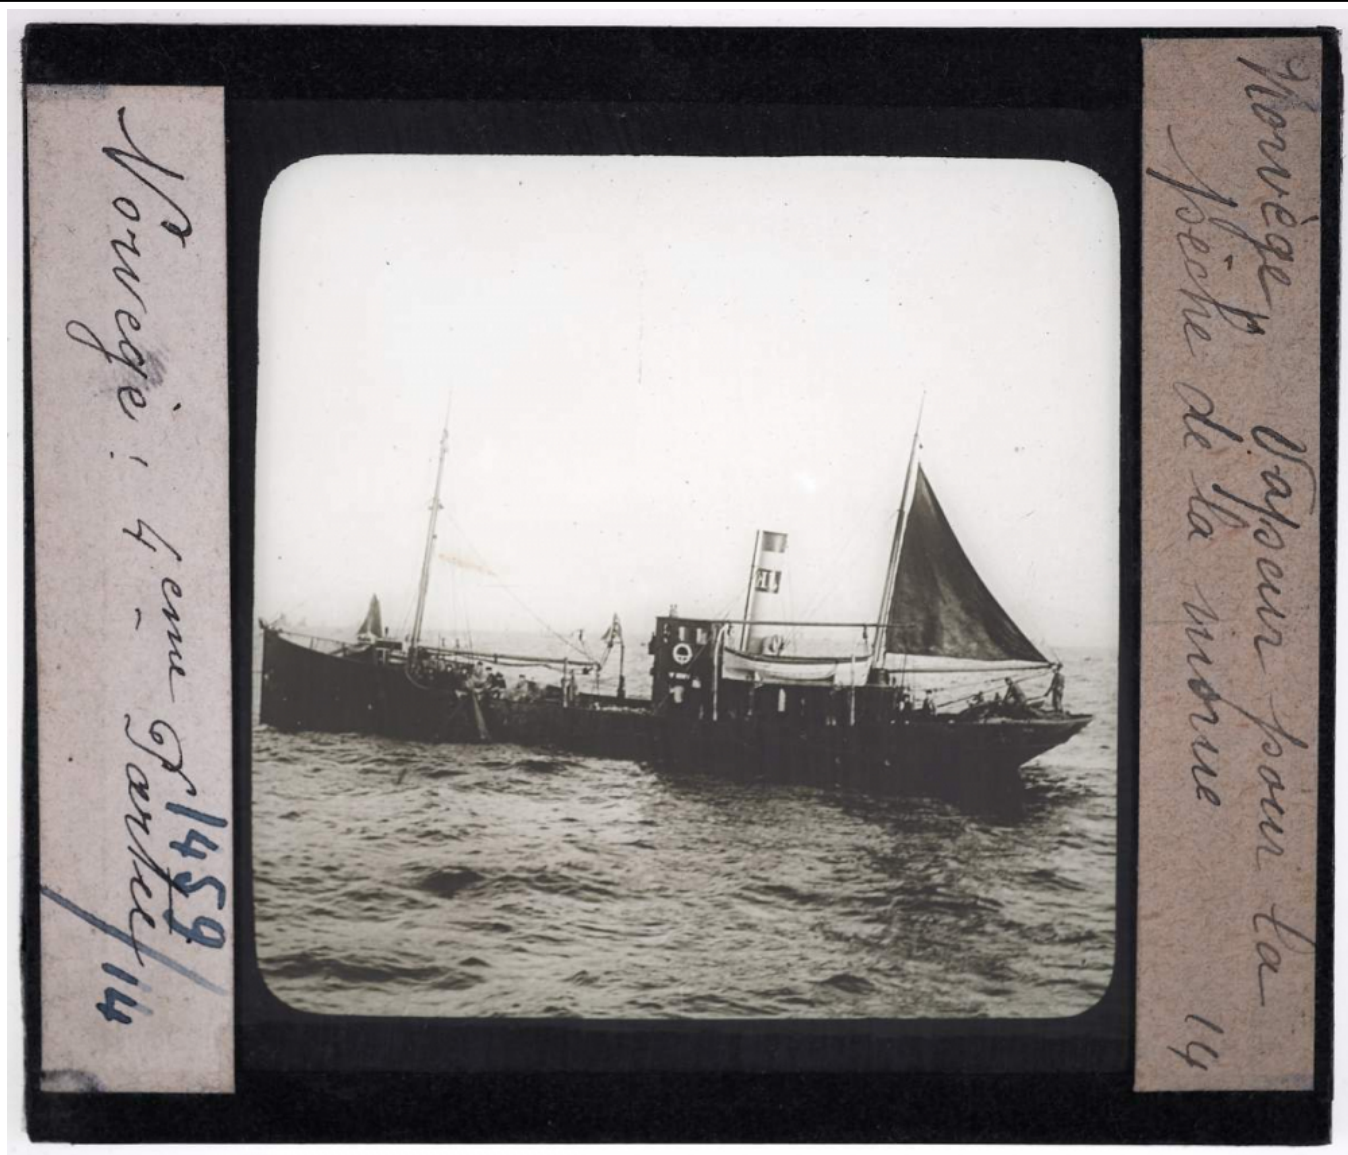 Norvège : 4eme Partie
1459
14
Norvège, Vapeur pour la
pêche de la morue 14